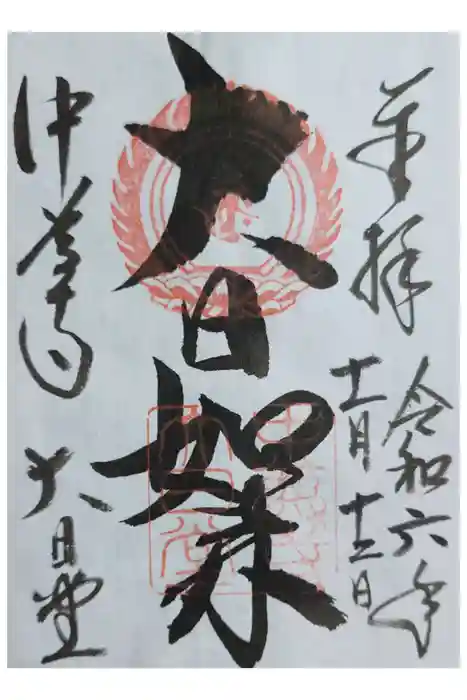 奉拝
令和六年
十一月十三日
大日如来
中尊寺 大日堂